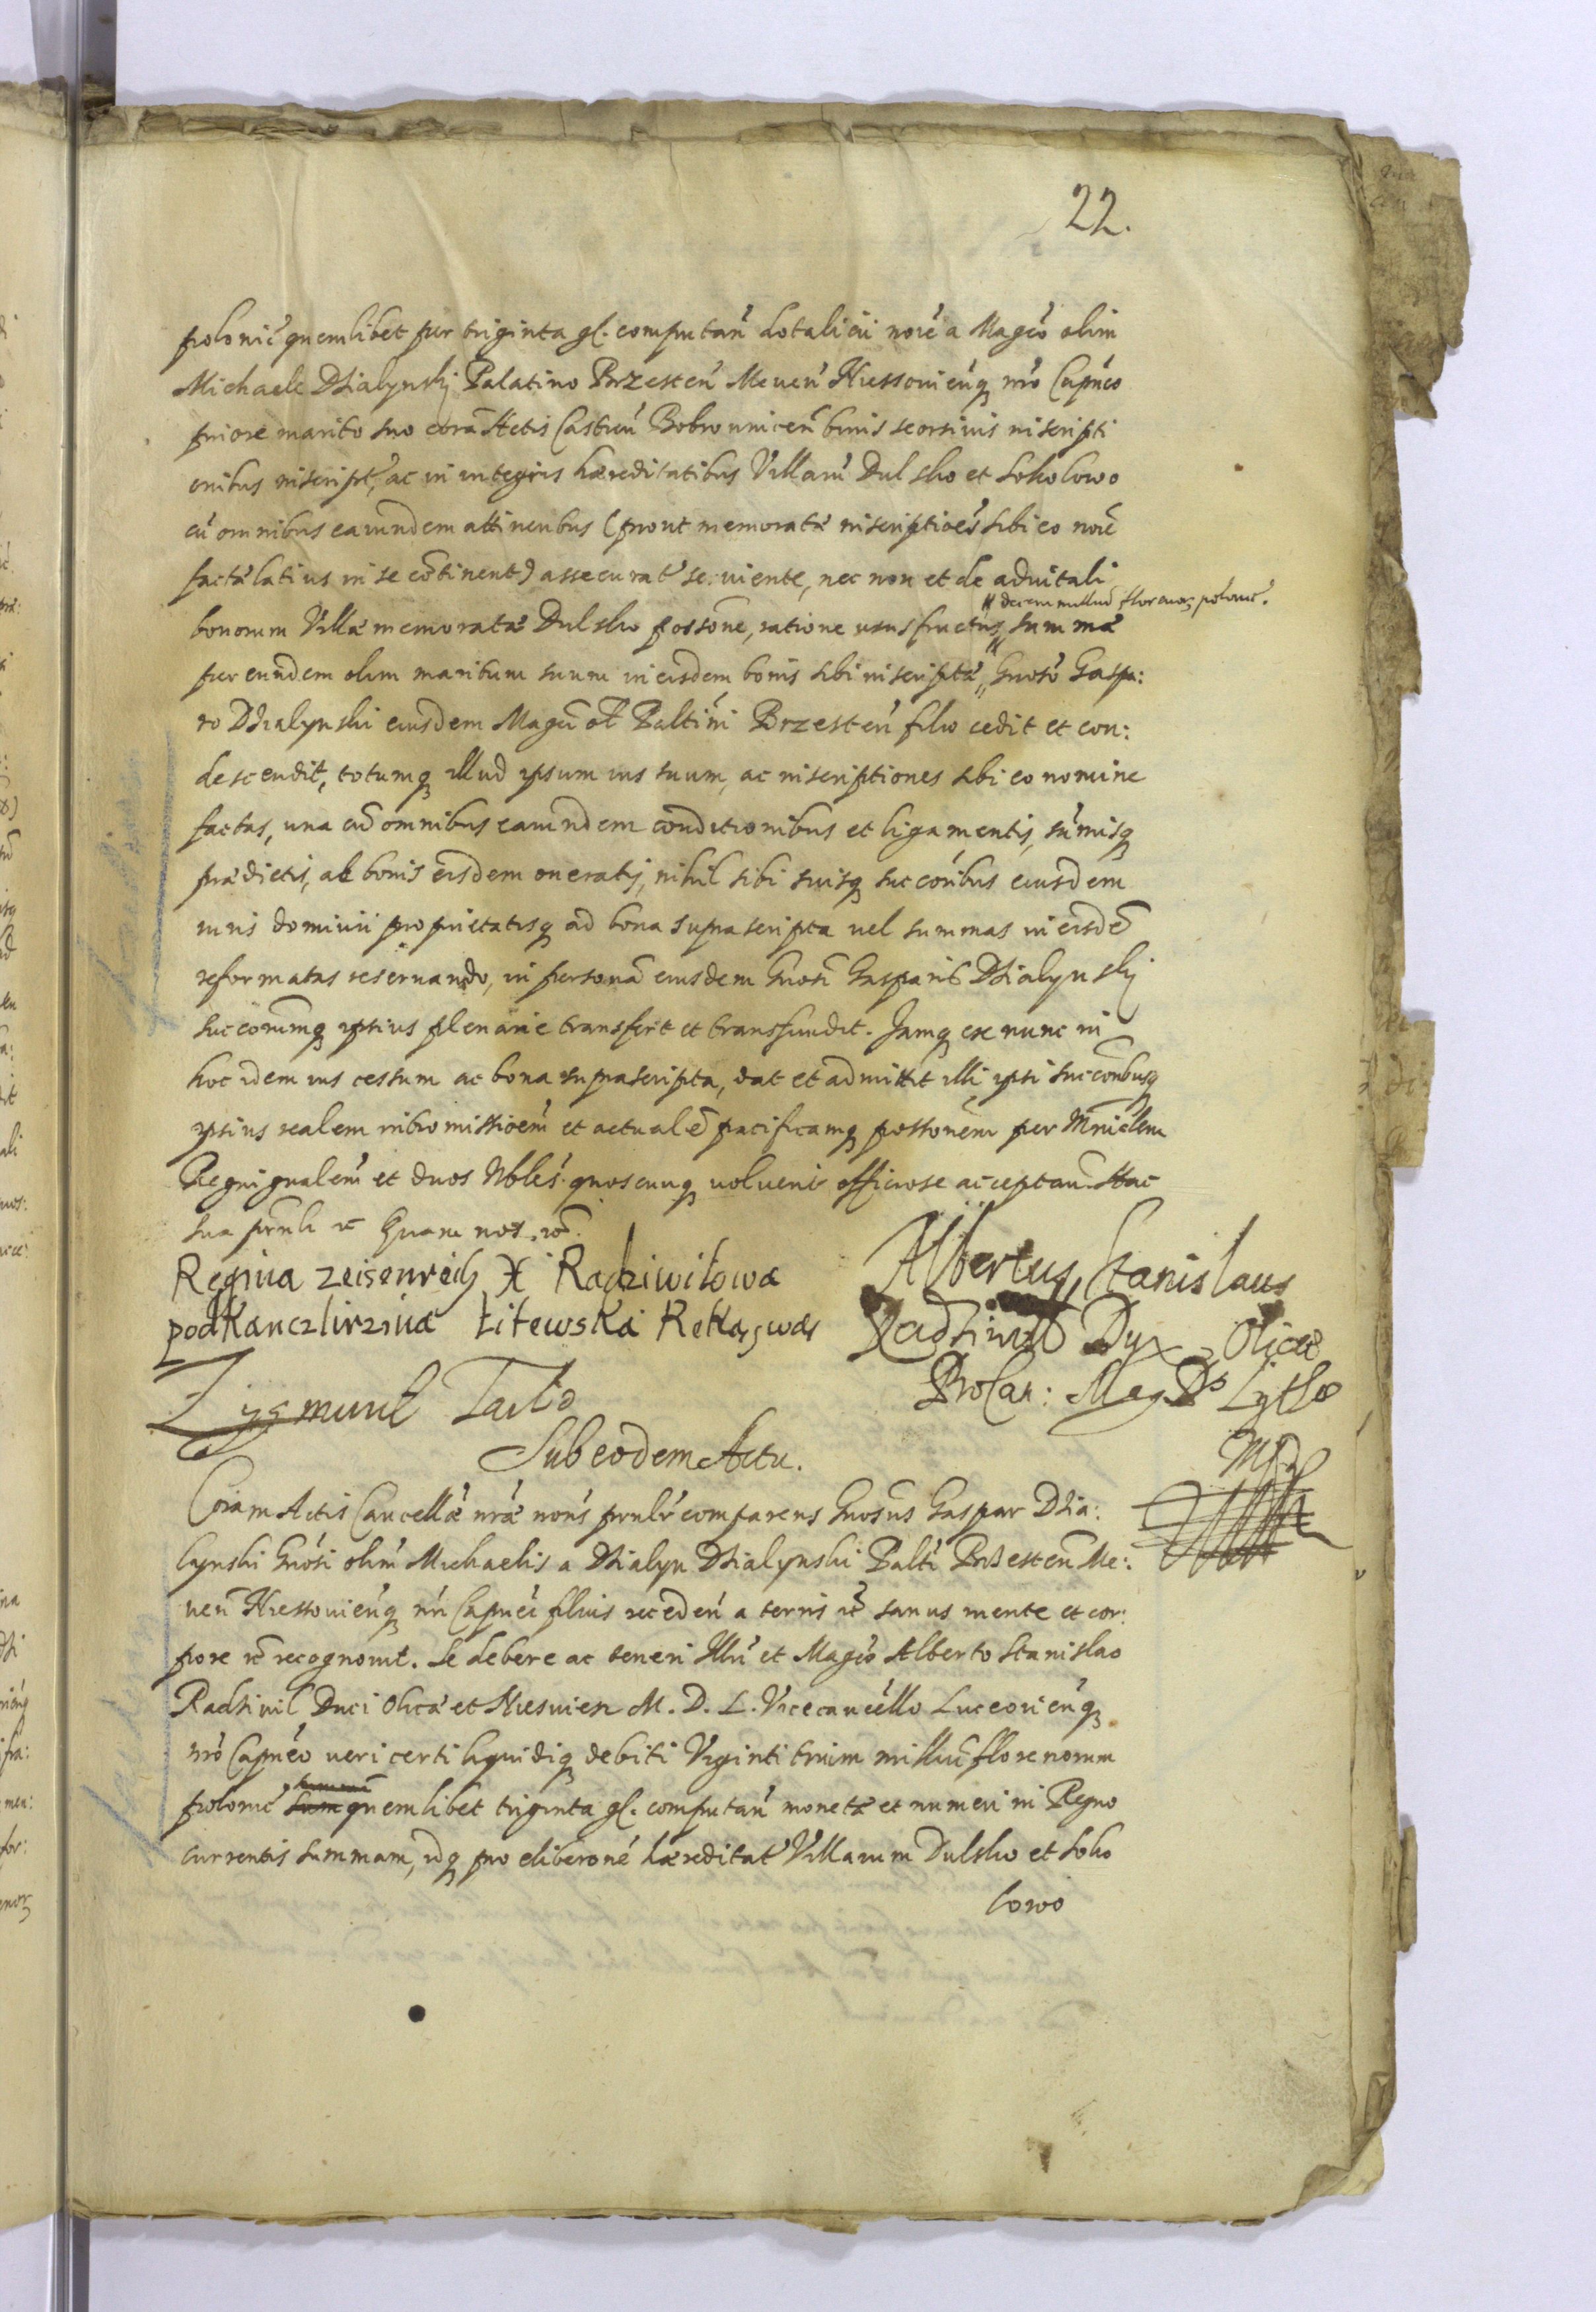 22.
polonic̃ quemlibet per triginta gl. computañ dotalicii noiẽ a Magco olim
Michaele Dzialynskj Palatino Brzesteñ Meveñ Niessovieñq₃ nr̃o Capneo
priore marito suo corã Actis Castreñ Bobrovniceñ binis seorsivis inscripti
onibus inscript̃, ac in integris hæreditatibus Villarũ Dulsko et Sokolowo
cũ omnibus earundem attinentibus (prout memoratæ inscriptioẽs sibi eo noiẽ
factæ latius in se cõtinent) assecurat̃ serviente, nec non et de advitali
" decem milliũ florenor₃ polonic̃.
bonorum Villæ memoratæ Dulsko possone, ratione ususfructus " summæ
per eundem olim maritum suum in eisdem bonis sibi inscriptæ " Gnoso Gaspa:
ro Dzialynski eiusdem Magci ol̃ Paltini Brzesteñ filio cedit et con:
descendit, totumq₃ illud ipsum ius suum, ac inscriptiones sibi eo nomine
factas, una cũ omnibus earundem conditionibus et ligamentis, sũmisq₃
prædictis, ab bonis eisdem oneratis, nihil sibi suisq₃ succoribus eiusdem
iuris dominii proprietatisq₃ ad bona suprascripta vel summas in eisdẽ
reformatas reservando, in personã eiusdem Gnosi Gasparis Dzialynskj
succorumq₃ ipsius plenarie transfert et transfundit. Jamq₃ ex nunc in
hoc idem ius cessum ac bona suprascripta, dat et admittit illi ipsi succoribusq₃
ipsius realem intromissioẽm et actualẽ pacificamq₃ possonem per Mnrialem
Regni gnalem et duos Nbles quoscunq₃ voluerit officiose acceptañ. Hac
sua prnti rc̃ Quam not. rc̃.
Regina zeisenreich X Radziwilowa
podkanczlirzina Litewska Reką swą
Albertus Stanislaus
Radziwil Dux Olicæ
ProCan: Mag. Ds Lytho
Zygmunt Tarlo
Mp
Sub eodem Actu.
Coram Actis Cancellæ nræ noris prnlr comparens Gnosus Gaspar Dzia:
lynski Gnosi olim Michaelis a Dzialyn Dzialynski Palti Brzesteñ Me:
veñ Niessovieñq₃ nri Capnei filius recedeñ a terris rc̃ sanus mente et cor:
pore rc̃ recognovit. Se debere ac teneri Illri et Magco Alberto Stanislao
Radzivil Duci Olicæ et Niesvien M. D. L. Vicecancello Luceorieñq₃
nro Capneo veri certi liquidiq₃ debiti Viginti trium milliũ florenorum
polonic̃ quemlibet triginta gl. computañ monetæ et numeri in Regno
currentis summam, idq₃ pro eliberone hæreditat̃ Villarum Dulsko et Soko
lowo